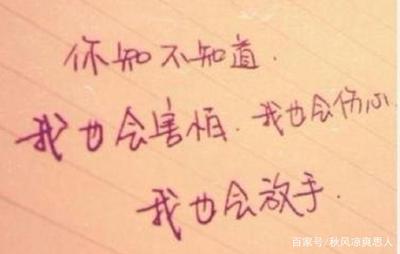 你知不知道.
我也会害怕.我也会伤心.
我也会放手.
百家号/秋风凉爽思人